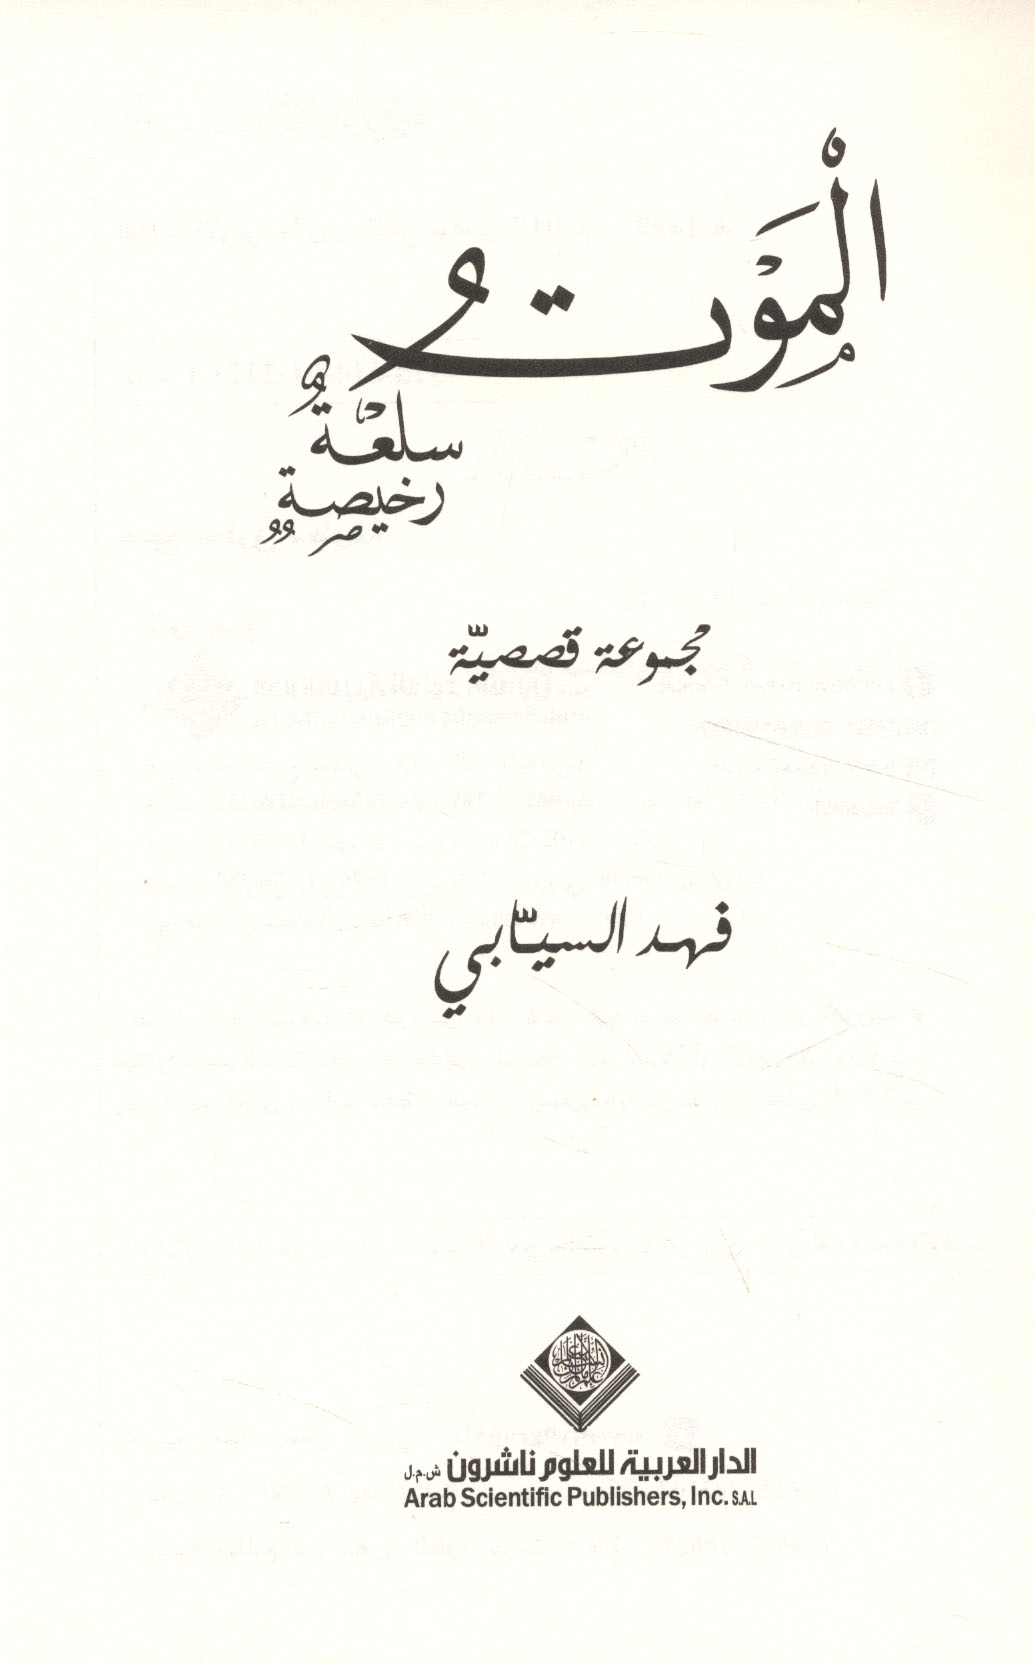 الْمَوْتُ
سلعةٌ
رخيصةٌ
مجموعة قصصيّة
فهد السيّابي
الدار العربية للعلوم ناشرون ش.م.ل
Arab Scientific Publishers, Inc. S.A.L